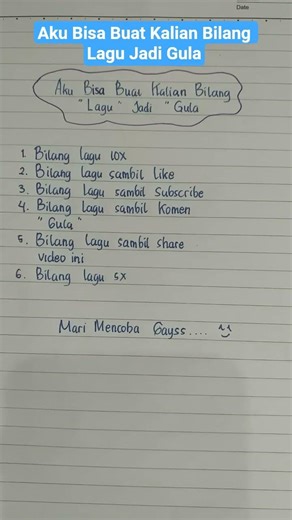 Aku Bisa Buat Kalian Bilang
Lagu Jadi Gula
Date
Aku Bisa Buat Kalian Bilang
"Lagu" Jadi "Gula
1. Bilang lagu 10x
2. Bilang lagu sambil like
3. Bilang lagu sambil Subscribe
4. Bilang lagu sambil Komen
"Gula"
5. Bilang lagu sambil share
video ini
6. Bilang lagu 5x
Mari Mencoba Gayss....